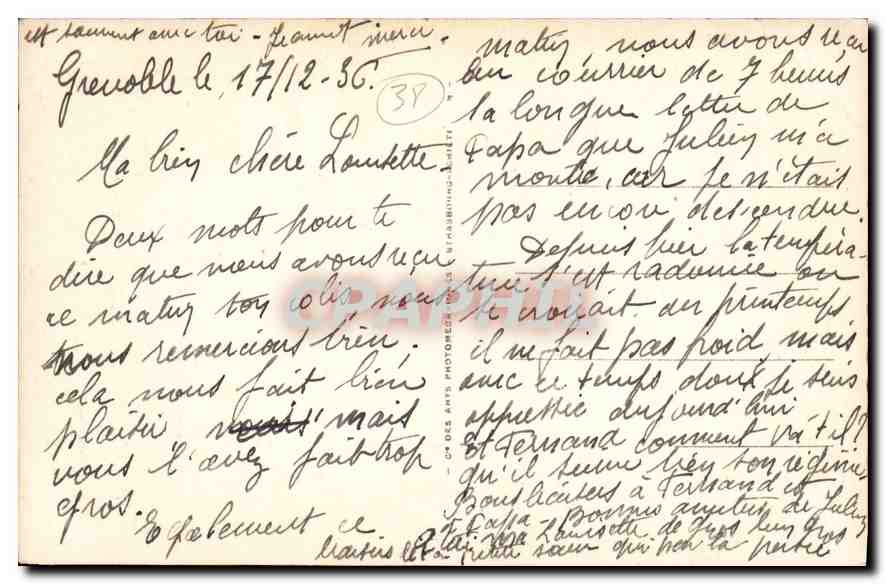 est souvent avec toi - Jeannot merci.
Grenoble le, 17/12-36.
38
Ma bien chère Lousette
Deux mots pour te
dire que nous avons reçu
ce matin ton colis, nous
nous remercions bien,
cela nous fait bien
plaisir mais
vous l'avez fait trop
gros.
Egalement ce
matin, nous avons reçu
au courrier de 7 heures
la longue lettre de
Papa que Julien m'a
monté, car je n'étais
pas encore descendue.
Depuis hier la tempéra-
ture s'est radoucie on
se croirait au printemps
il ne fait pas froid, mais
avec ce temps doux je suis
oppressée aujourd'hui
Et Fernand comment va-t-il?
qu'il suive bien son régime
Bons baisers à Fernand et
à Papa. Bonnes amitiés de Julien
à toi ma Lousette de gros bien gros
baisers de ta petite soeur qui par la pensée
- Cie DES ARTS PHOTOMECANIQUES STRASBOURG-SCHILTI
CPAPHIL